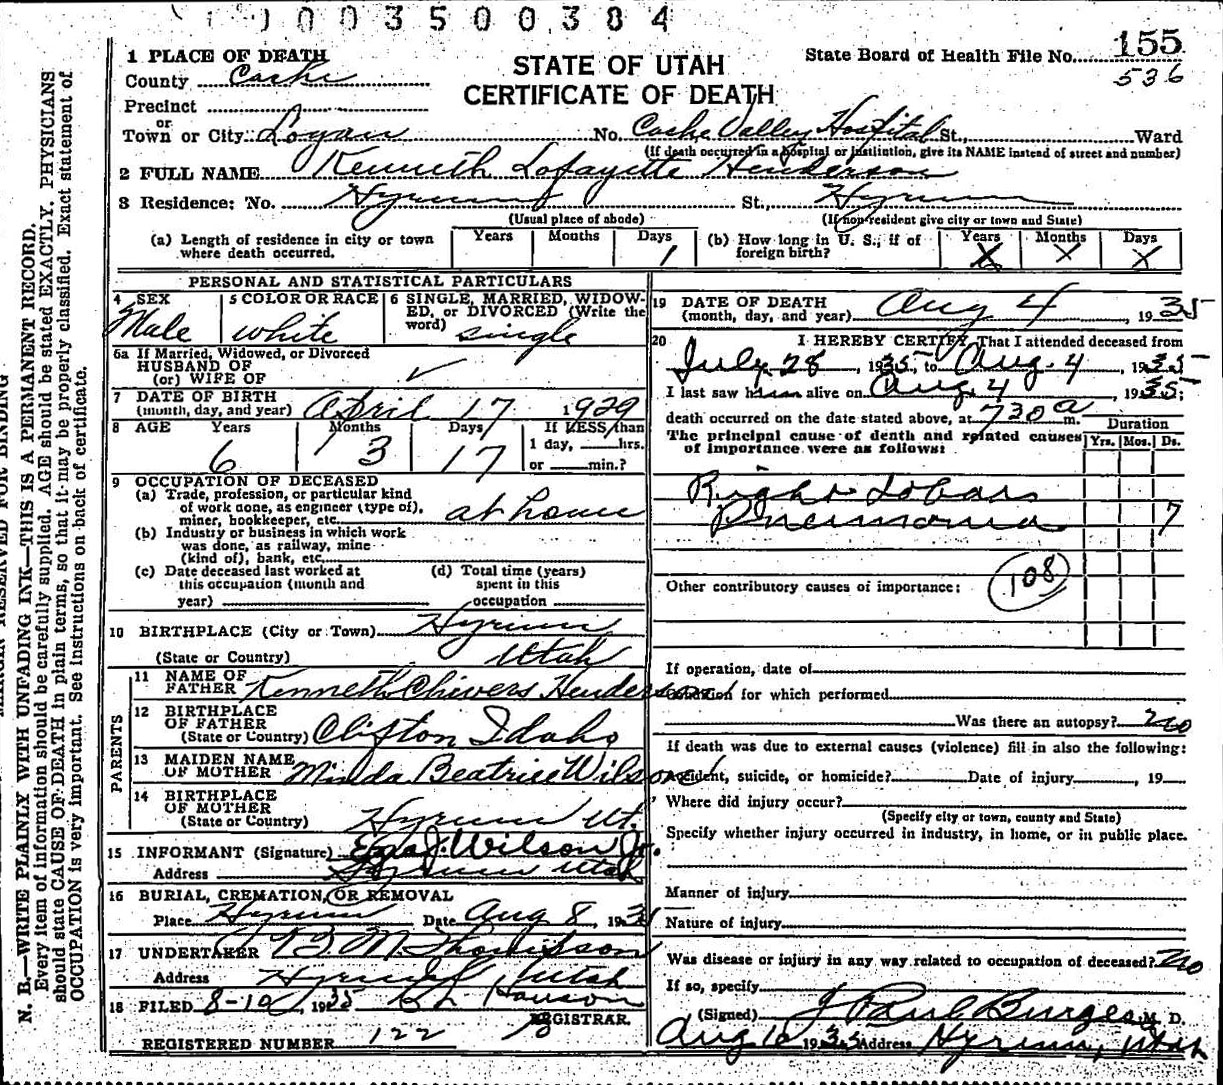 003500384
1 PLACE OF DEATH
County Cache
STATE OF UTAH
CERTIFICATE OF DEATH
State Board of Health File No. 155
536
Precinct
or
Town or City Logan No. Cache Valley Hospital St., Ward
(If death occurred in a hospital or institution, give its NAME instead of street and number)
2 FULL NAME Kenneth Lafayette Henderson
3 Residence: No. Hyrum St., Hyrum
(Usual place of abode) (If non-resident give city or town and State)
(a) Length of residence in city or town where death occurred. Years Months Days 1
(b) How long in U. S., if of foreign birth? Years X Months X Days X
PERSONAL AND STATISTICAL PARTICULARS
4 SEX Male
5 COLOR OR RACE white
6 SINGLE, MARRIED, WIDOW-
ED, or DIVORCED (Write the
word) single
6a If Married, Widowed, or Divorced
HUSBAND OF
(or) WIFE OF
7 DATE OF BIRTH
(month, day, and year) April 17 1929
8 AGE Years Months Days If LESS than
6 3 17 1 day, hrs.
or min.?
9 OCCUPATION OF DECEASED
(a) Trade, profession, or particular kind
of work done, as engineer (type of),
miner, bookkeeper, etc. at home
(b) Industry or business in which work
was done, as railway, mine
(kind of), bank, etc.
(c) Date deceased last worked at
this occupation (month and
year)
(d) Total time (years)
spent in this
occupation
10 BIRTHPLACE (City or Town) Hyrum
(State or Country) Utah
PARENTS
11 NAME OF
FATHER Kenneth Chivers Henderson
12 BIRTHPLACE
OF FATHER
(State or Country) Clifton Idaho
13 MAIDEN NAME
OF MOTHER Minda Beatrice Wilson
14 BIRTHPLACE
OF MOTHER
(State or Country) Hyrum Ut.
15 INFORMANT (Signature) J. Wilson Jr.
Address Hyrum Utah
16 BURIAL, CREMATION, OR REMOVAL
Place Hyrum Date Aug 8, 1935
17 UNDERTAKER M. Thompson
Address Hyrum Utah
18 FILED 8-10, 1935 Hanson
REGISTRAR.
REGISTERED NUMBER 122
19 DATE OF DEATH
(month, day, and year) Aug 4, 1935
20 I HEREBY CERTIFY, That I attended deceased from
July 28, 1935, to Aug. 4, 1935
I last saw him alive on Aug. 4, 1935;
death occurred on the date stated above, at 730 a m.
The principal cause of death and related causes
of importance were as follows:
Duration
Yrs. Mos. Ds.
Right Lobar
Pneumonia 7
108
Other contributory causes of importance:
If operation, date of
Condition for which performed
Was there an autopsy? no
If death was due to external causes (violence) fill in also the following:
Accident, suicide, or homicide? Date of injury, 19
Where did injury occur?
(Specify city or town, county and State)
Specify whether injury occurred in industry, in home, or in public place.
Manner of injury
Nature of injury
Was disease or injury in any way related to occupation of deceased? no
If so, specify
(Signed) J Paul Burgess M. D.
Aug 6 1935 Address Hyrum, Utah
MARGIN RESERVED FOR BINDING
N. B.—WRITE PLAINLY WITH UNFADING INK—THIS IS A PERMANENT RECORD.
Every item of information should be carefully supplied. AGE should be stated EXACTLY. PHYSICIANS
should state CAUSE OF DEATH in plain terms, so that it may be properly classified. Exact statement of
OCCUPATION is very important. See instructions on back of certificate.